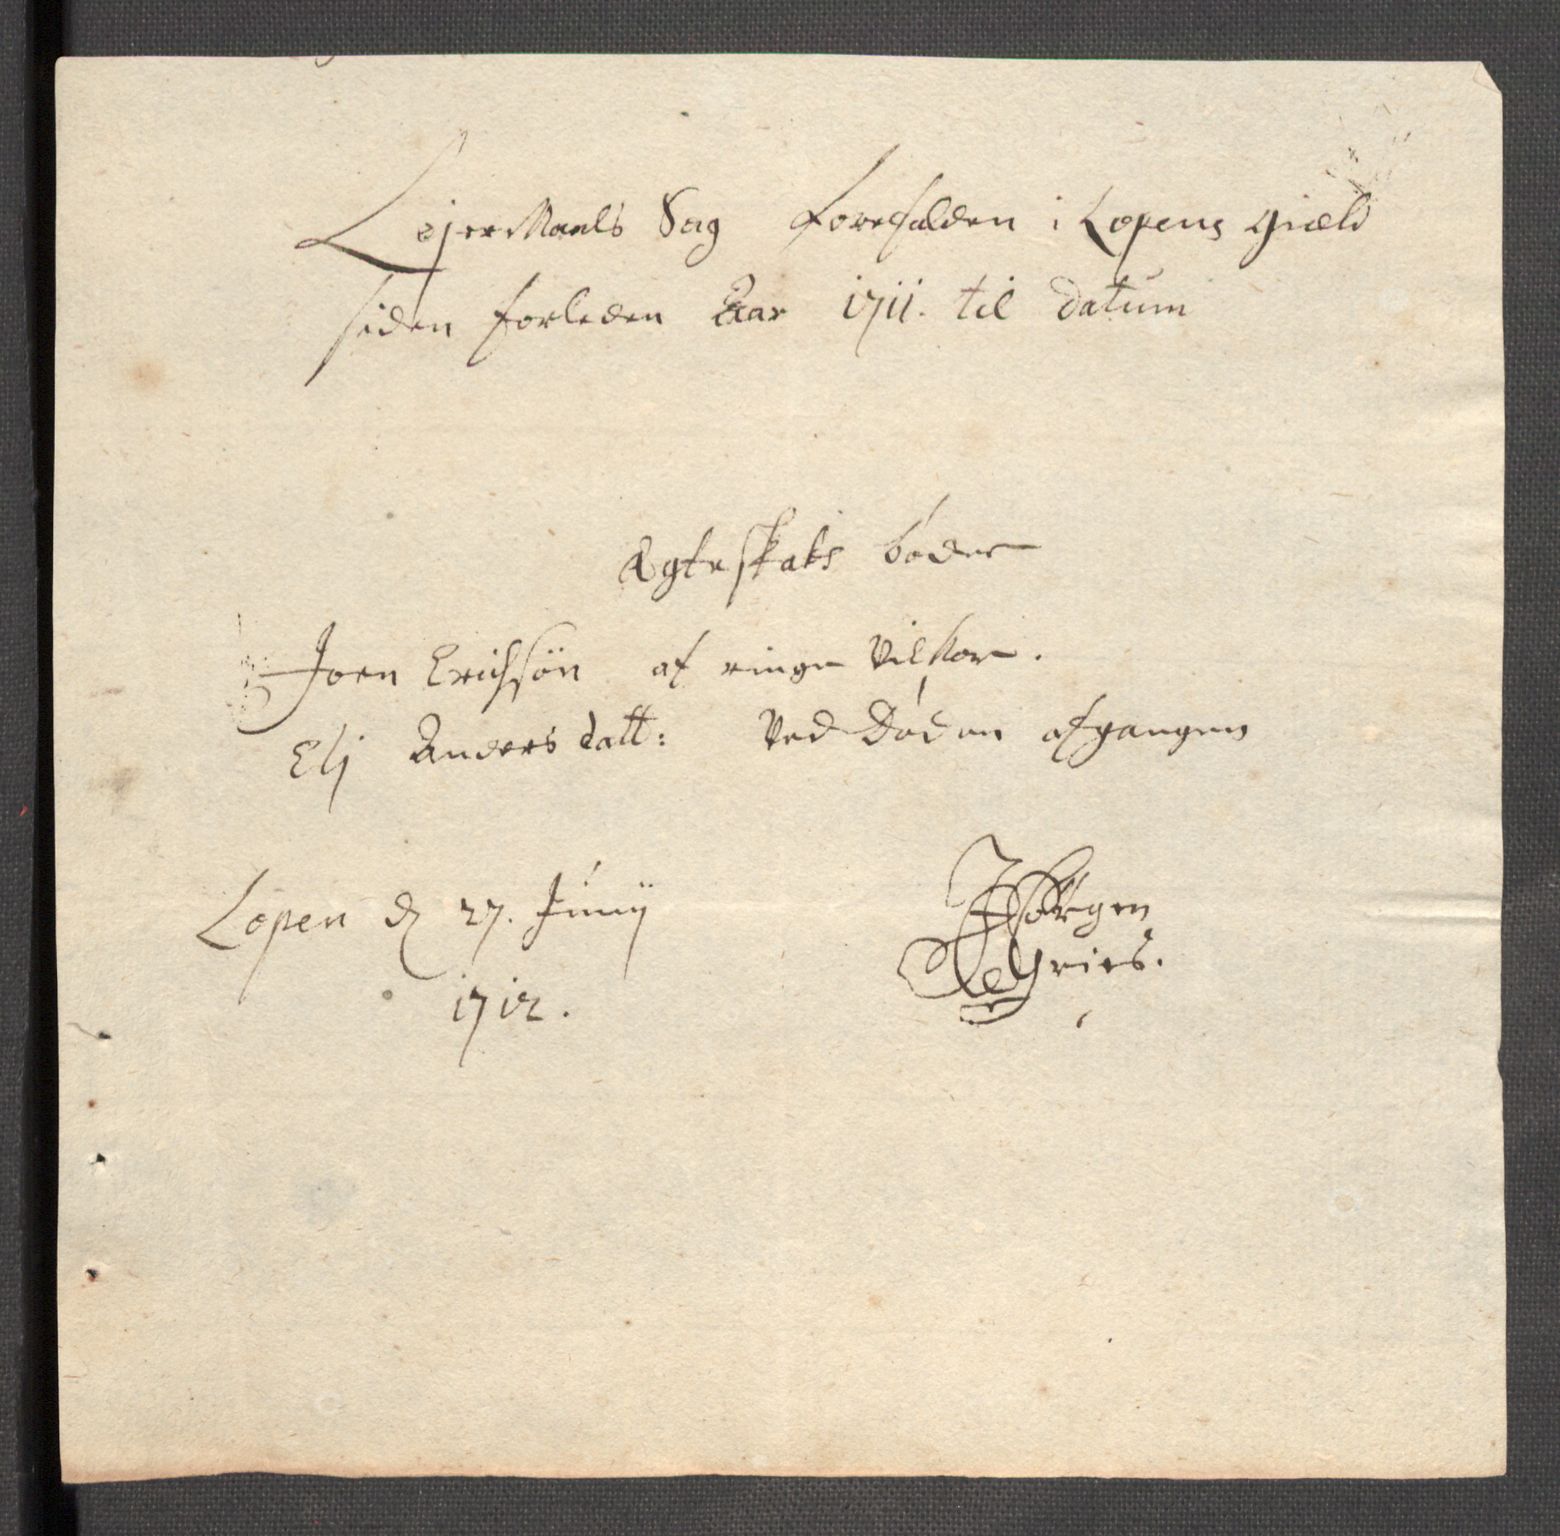 Lejermaals Sag forefalden i Lopens Gield
siden forleden Aar 1711. til Datum
Egteskabs bøder
Joen Erichsøn af ringe Vilkor.
Elj Anders datt: Ved Døden afgangen
Lopen d 27. Junij
1712.
Jørgen
Gries.